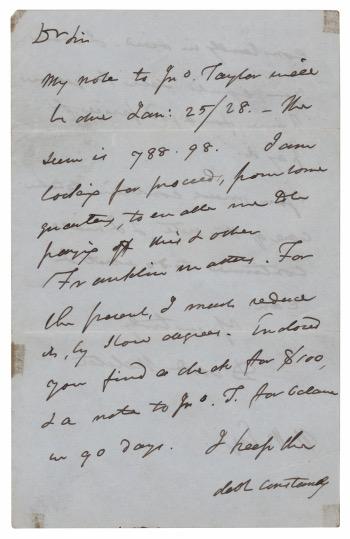 Dr Sir
My note to Jno. Taylor will
be due Jan: 25/28. - The
sum is 788.98. I am
looking for proceeds, from some
quarters, to enable me to be
paying off this & other
Franklin matters. For
the present, I must reduce
it, by slow degrees. Enclosed
you find a check for $100,
& a note to Jno. T. for balance
in 90 days. I keep the
debt constantly